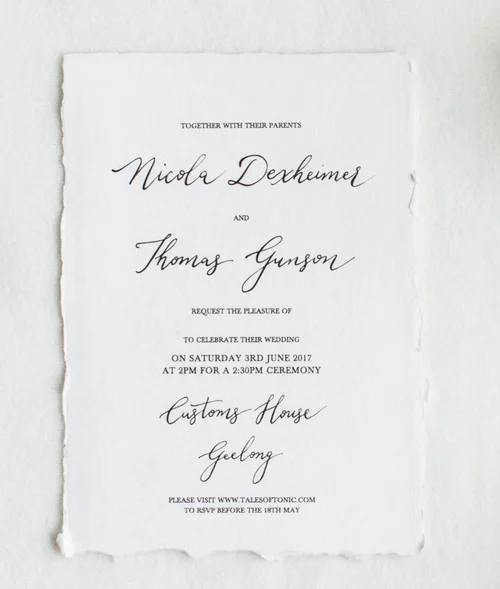 TOGETHER WITH THEIR PARENTS
Nicola Dexheimer
AND
Thomas Gunson
REQUEST THE PLEASURE OF
TO CELEBRATE THEIR WEDDING
ON SATURDAY 3RD JUNE 2017
AT 2PM FOR A 2:30PM CEREMONY
Customs House
Geelong
PLEASE VISIT WWW.TALESOFTONIC.COM
TO RSVP BEFORE THE 18TH MAY